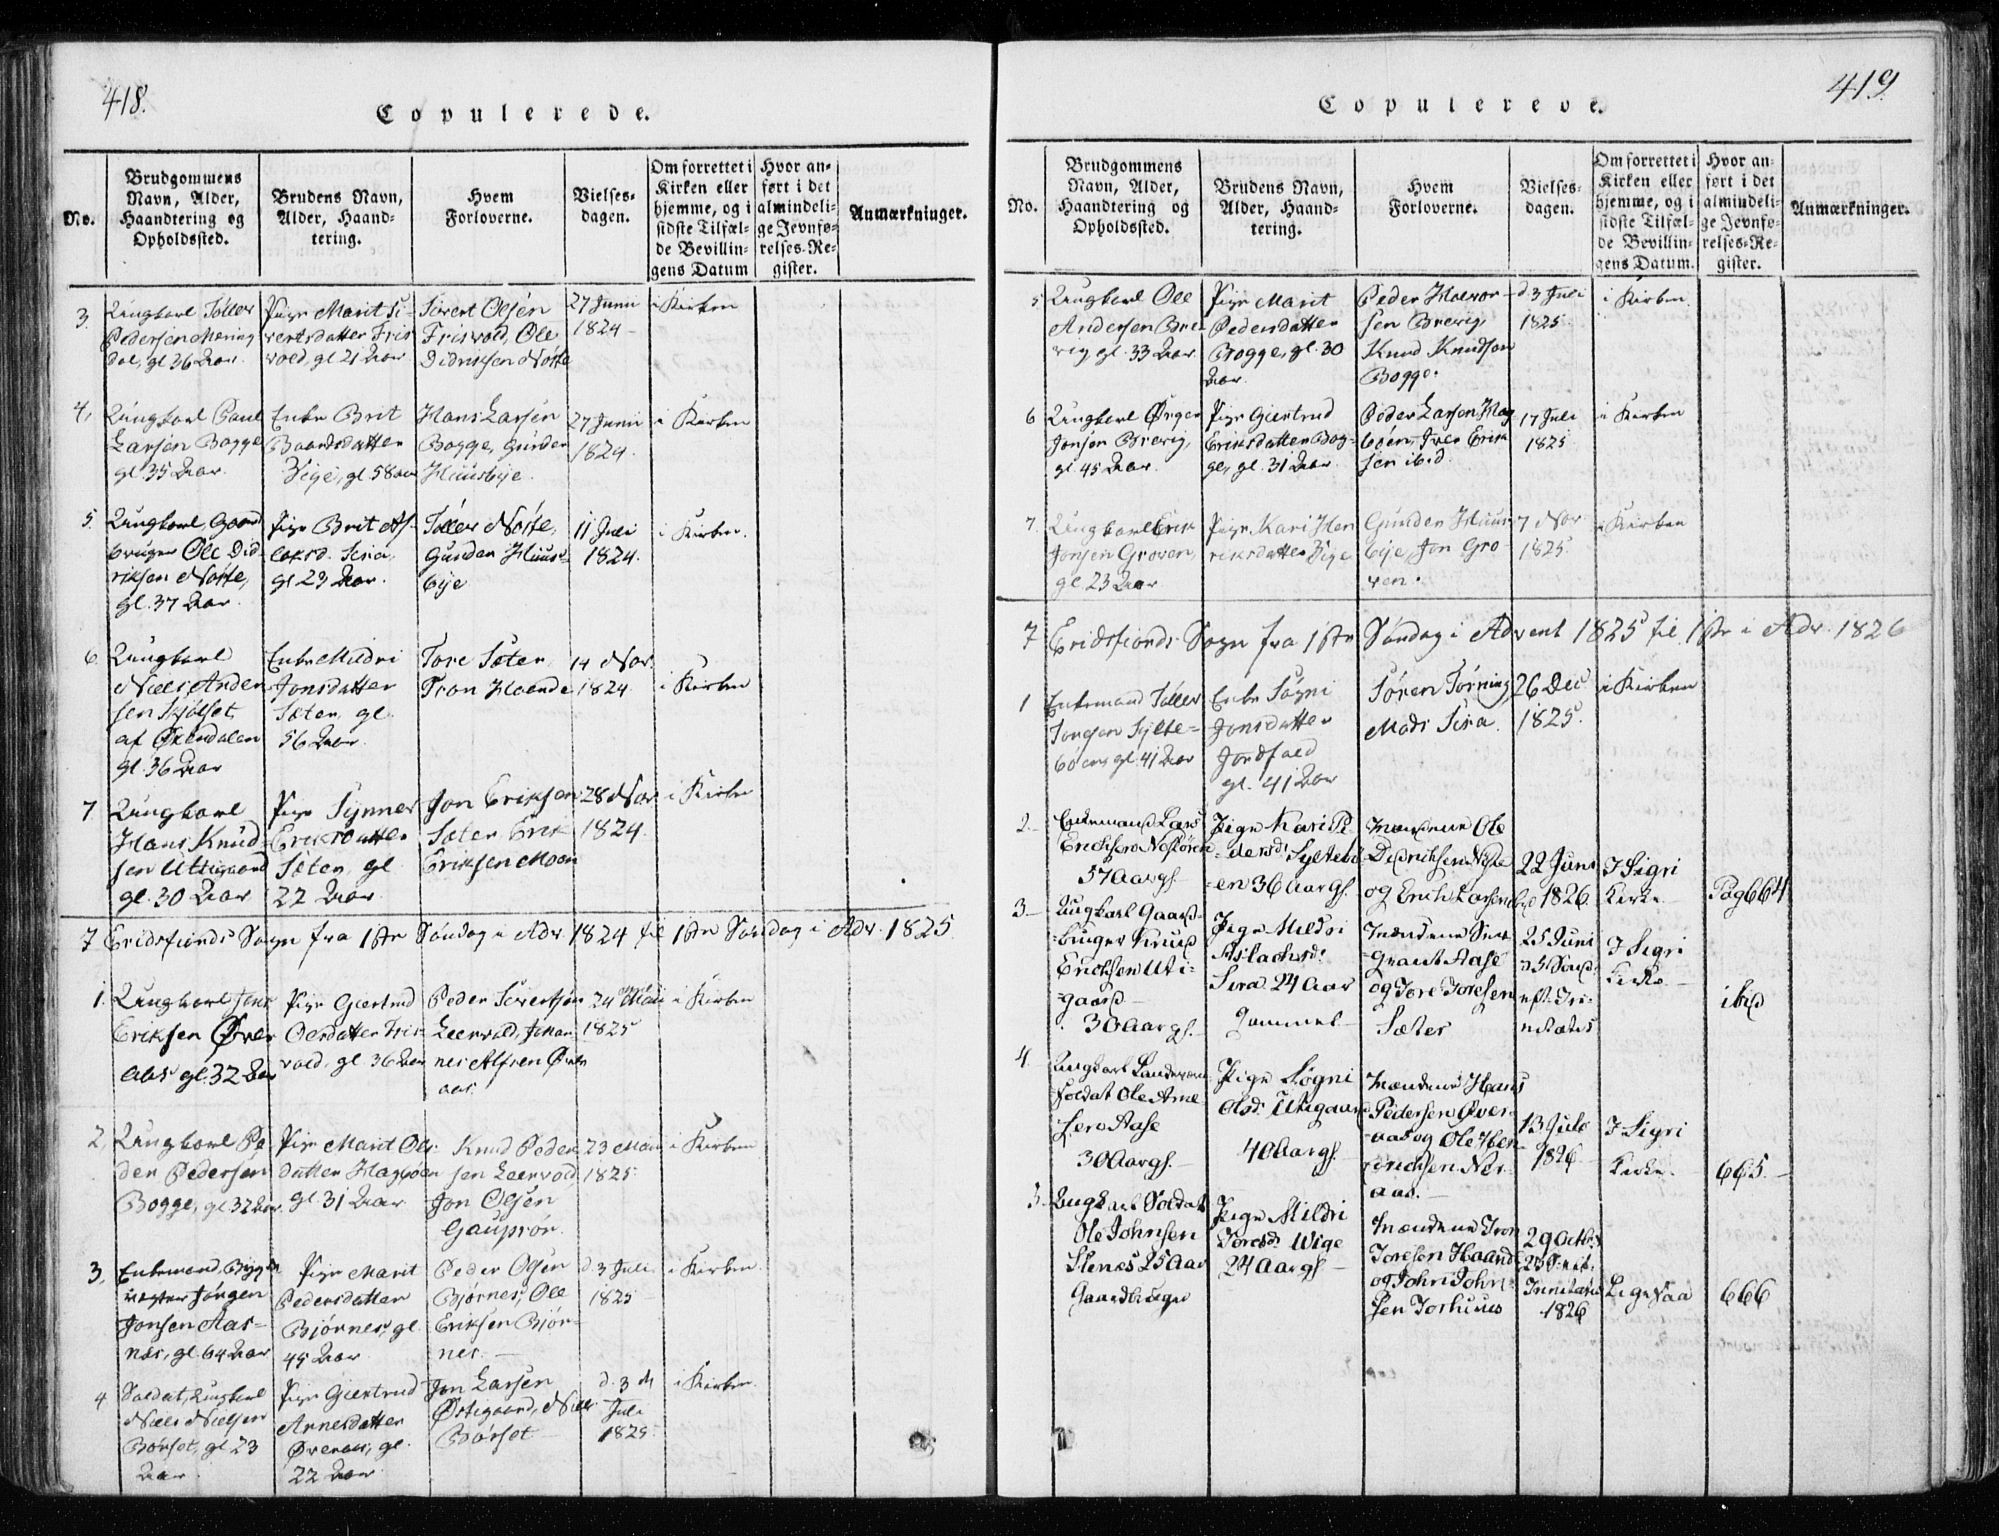 418.
Copulerede.
No.
Brudgommens
Navn, Alder,
Haandtering og
Opholdssted.
Brudens Navn,
Alder, Haand-
tering.
Hvem
Forloverne.
Vielses-
dagen.
Om forrettet i
Kirken eller
hjemme, og i
sidste Tilfæl-
de Bevillin-
gens Datum
Hvor an-
ført i det
almindeli-
ge Jevnfø-
relses-Re-
gister.
Anmærkninger.
3.
Ungkarl Toller
Pedersen Mering
dal, gl 36 Aar.
Pige Marit Si-
vertsdatter Fris
vold, gl 21 Aar
Sivert Olsen
Frisvold, Ole
Didriksen Noste
27 Juni
1824
i Kirken
4.
Ungkarl Paul
Larsen Bogge
gl. 35 Aar.
Enke Brit
Baardsdatter
Vige, gl. 58 aar
Hans Larsen
Bogge, Gunder
Huusbye.
27 Juni
1824.
i Kirken
5.
Ungkarl, Gaard
bruger Ole Did-
riksen Noste,
gl. 37 Aar.
Pige Brit As-
laksd. Sira
gl 23 Aar.
Toller Noste,
Gunder Huus-
bye
11 Juli
1824.
i Kirken.
6.
Ungkarl
Niels Ander
sen Skjølset
af Øxendalen
gl. 36 Aar
Enke Mildri
Jonsdatter
Sæter, gl.
56 Aar.
Tore Sæter,
Tron Haande
14 Nov.
1824.
i Kirken
7
Ungkarl
Hans Knud-
sen Uttigaard
gl. 30 Aar
Pige Synnev
Eriksdatter
Sæter, gl.
22 Aar.
Jon Eriksen
Sæter Erik
Eriksen Moen
28 Nov.
1824.
i Kirken
7 Eridsfiords Sogn fra 1ste Søndag i Adv. 1824 til 1ste Søndag i Adv. 1825.
1.
Ungkarl Jens
Eriksen Øver
aas gl. 32 Aar
Pige Giertrud
Olesdatter Fris-
vold, gl. 36 Aar
Peder Sivertsen
Leervold, Johan
nes Alfsen Øver
aas.
24 Mai
1825
i Kirken
2.
Ungkarl Pe
der Pedersen
Bogge, gl. 32 Aar.
Pige Marit Ols
datter Hagboen
gl. 31 Aar
Knud Peder
sen Leervold
Jon Olsen
Gauprør.
23 Mai
1825.
i Kirken
3.
Enkemand, Bygde
Jørgen
Jonsen Aas-
nes, gl. 64 Aar
Pige Marit
Pedersdatter
Bjørnes, gl.
45 Aar
Peder Olsen
Bjørnes, Ole
Eriksen Bjør-
nes.
d. 3 Juli
1825
i Kirken.
4
Soldat, Ungkarl
Niels Nielsen
Børset, gl. 23
Aar.
Pige Giertrud
Arnesdatter
Øveraas, gl.
22 Aar
Jon Larsen
Østigaard, Niels
Børset
d. 3 d
Juli
1825.
i Kirken.
419.
Copulerede.
No.
Brudgommens
Navn, Alder,
Haandtering og
Opholdssted.
Brudens Navn,
Alder, Haand-
tering.
Hvem
Forloverne.
Vielses-
dagen.
Om forrettet i
Kirken eller
hjemme, og i
sidste Tilfæl-
de Bevillin-
gens Datum.
Hvor an-
ført i det
almindeli-
ge Jevnfø-
relses-Re-
gister.
Anmærkninger.
5
Ungkarl Ole
Andersen Bre-
vig gl. 33 Aar.
Pige Marit
Pedersdatter
Bogge, gl. 30
Aar.
Peder Halvor-
sen Brevig,
Knud Knudsen
Bogge.
d. 3 Juli
1825.
i Kirken.
6
Ungkarl Ørgen
Jonsen Brevig,
gl. 45 Aar.
Pige Giertrud
Eriksdatter Bog-
ge, gl. 31 Aar
Peder Larsen Hag
boen, Iver Erik
sen ibid.
17 Juli
1825
i Kirken
7.
Ungkarl Erik
Jonsen Groven,
gl 23 Aar
Pige Kari Hen
riksdatter Vige
Gunder Huus
bye, Jon Gro
ven.
7 Nov
1825.
i Kirken
7 Eridsfiords Sogn fra 1ste Søndag i Advent 1825 til 1ste i Adv. 1826
1
Enkemand Toller
Jonsen Sylte-
bøen, gl. 41 Aar
Enke Søgni
Jonsdatter
Jordfald
gl. 41 Aar
Søren Tørning,
Mads Sira.
26 Dec
1825.
i Kirken
2.
Enkemand Lars
Erichsen
57 Aar gl.
Pige Kari Pe
dersd. Syltebø
-en 36 Aar gl.
Mændene Ole
Didrichsen Nøste
og Erich Larsen ibd
22 Juni
1826.
I Sigri
Kirke.
Pag 664
3.
Ungkarl Gaard-
bruger Knud
Erichsen Uti-
gaard
30 Aar gl.
Pige Mildri
Aslachsd.
Sira 24 Aar
Gammel
Mændene Ser
grant Aase
og Tore Toresen
Sæter
25 Juni
5 Sønd.
eft. Tri-
nitatis
I Sigri
Kirke.
ibid
4.
Ungkarl Landeværn
soldat Ole Arne
sen Aase
30 Aar gl.
Pige Søgni
Olsd. Utigaard
40 Aar gl.
Mændene Hans
Pedersen Øver-
aas og Ole Hen-
drichsen Ner-
aas.
13 Julo
1826
I Sigri
Kirke.
665.
5.
Ungkarl Soldat
Ole Johnsen
Stenes 25 Aar
Gaardbruger
Pige Mildri
Toresd. Wige
24 Aar gl.
Mændene Tron
Toresen Haande
og John John-
sen Torhuus
29 Octbr
23 S. eft.
Trinitatis
1826
Ligesaa
666